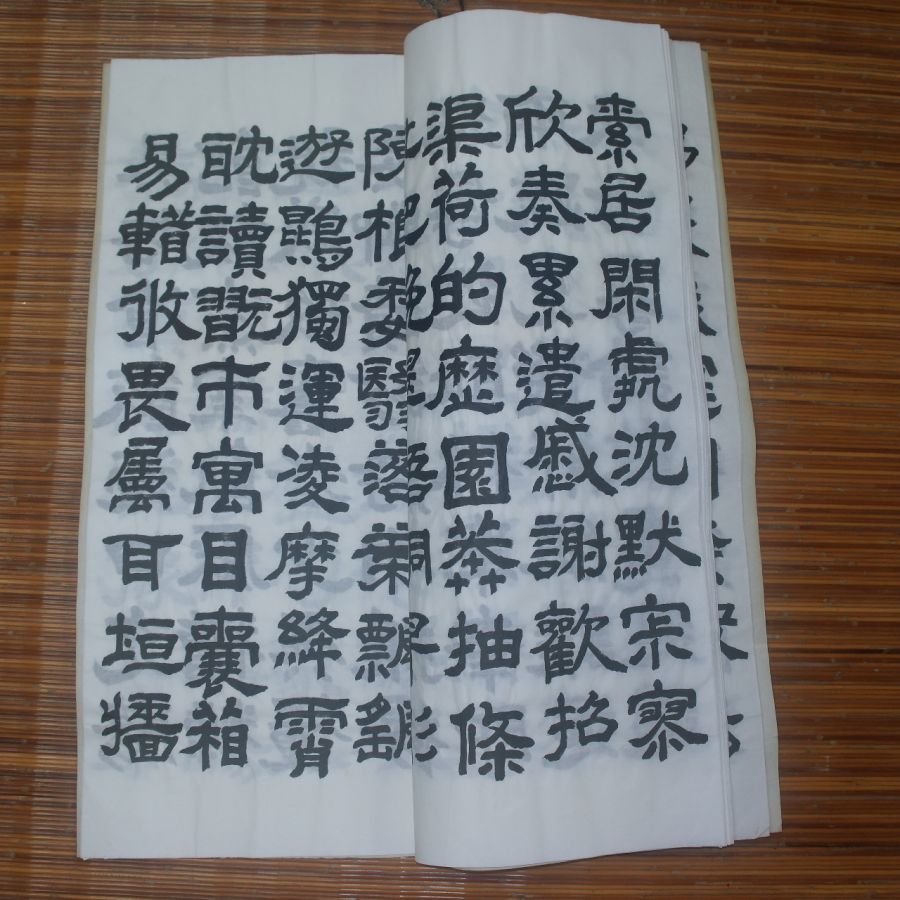 索居閑處沈默寂寥
欣奏累遣慼謝歡招
渠荷的歷園莽抽條
陳根委翳落葉飄颻
遊鵾獨運凌摩絳霄
耽讀翫市寓目囊箱
易輶攸畏屬耳垣牆